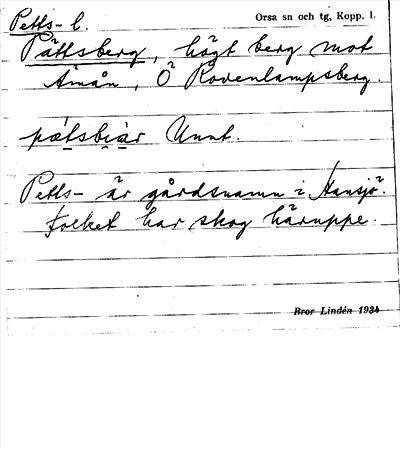 Petts- l.
Orsa sn och tg, Kopp. l.
Pättsberg, högt berg mot
Ämån, Ö Rovenlampsberg.
pætsbiär Unnt.
Petts- är gårdsnamn i Hansjö.
Folket har skog häruppe.
Bror Lindén 1934